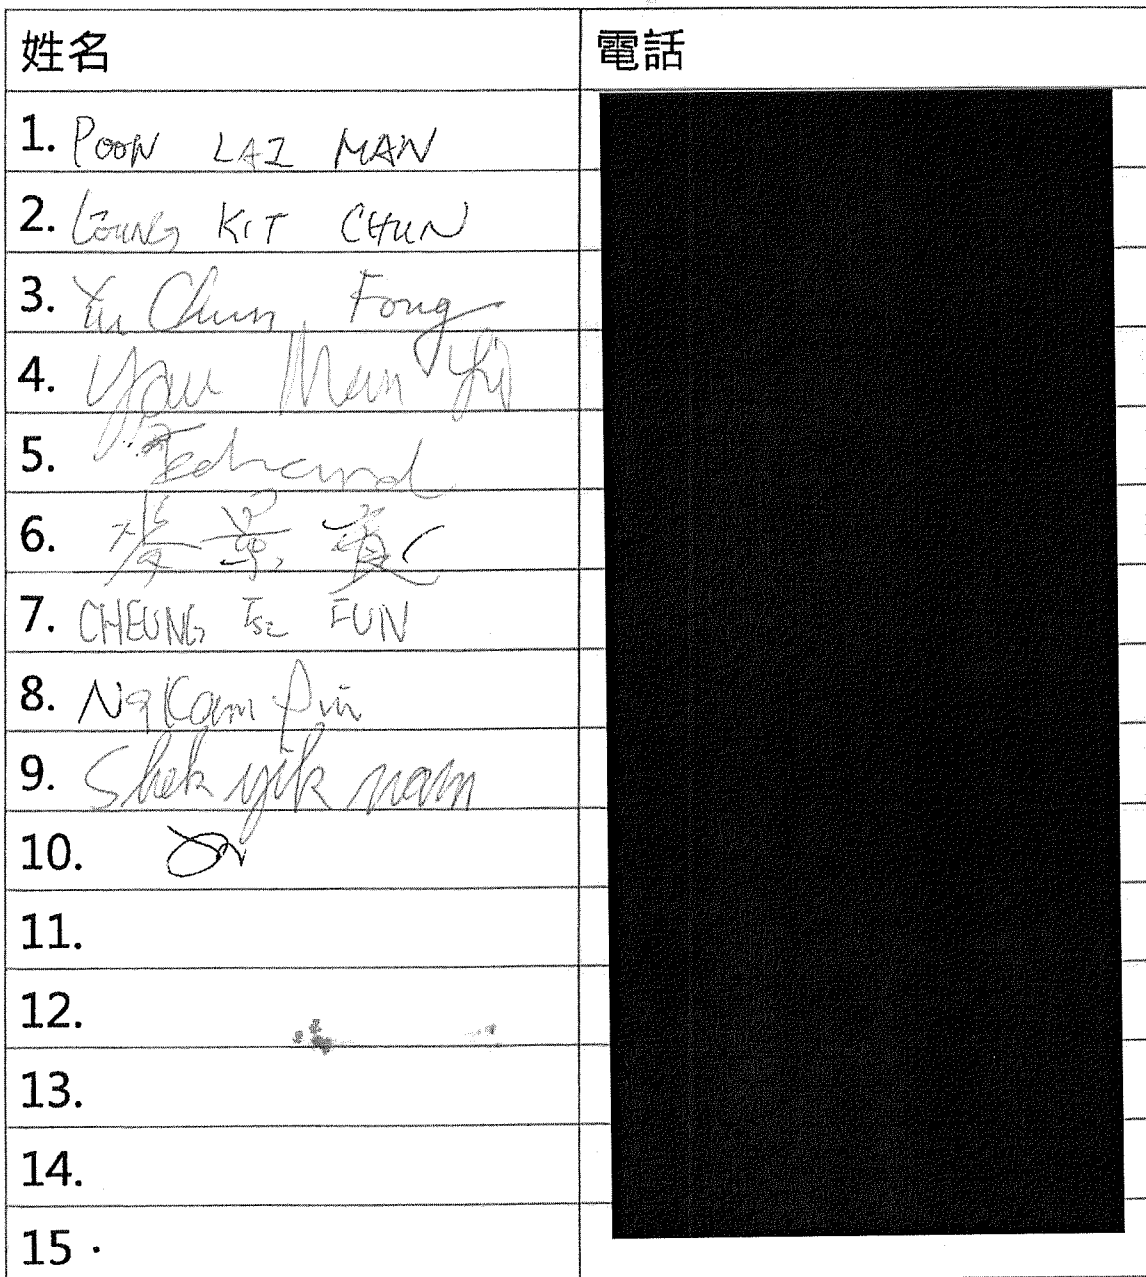 姓名 電話
1. POON LAI MAN
2. LEUNG KIT CHUN
3. Yu Chun Fong
4. Yau Man Yi
5.
6. 景
7. CHEUNG Tsz FUN
8. Ng Kam
9. Shek yik nam
10.
11.
12.
13.
14.
15.